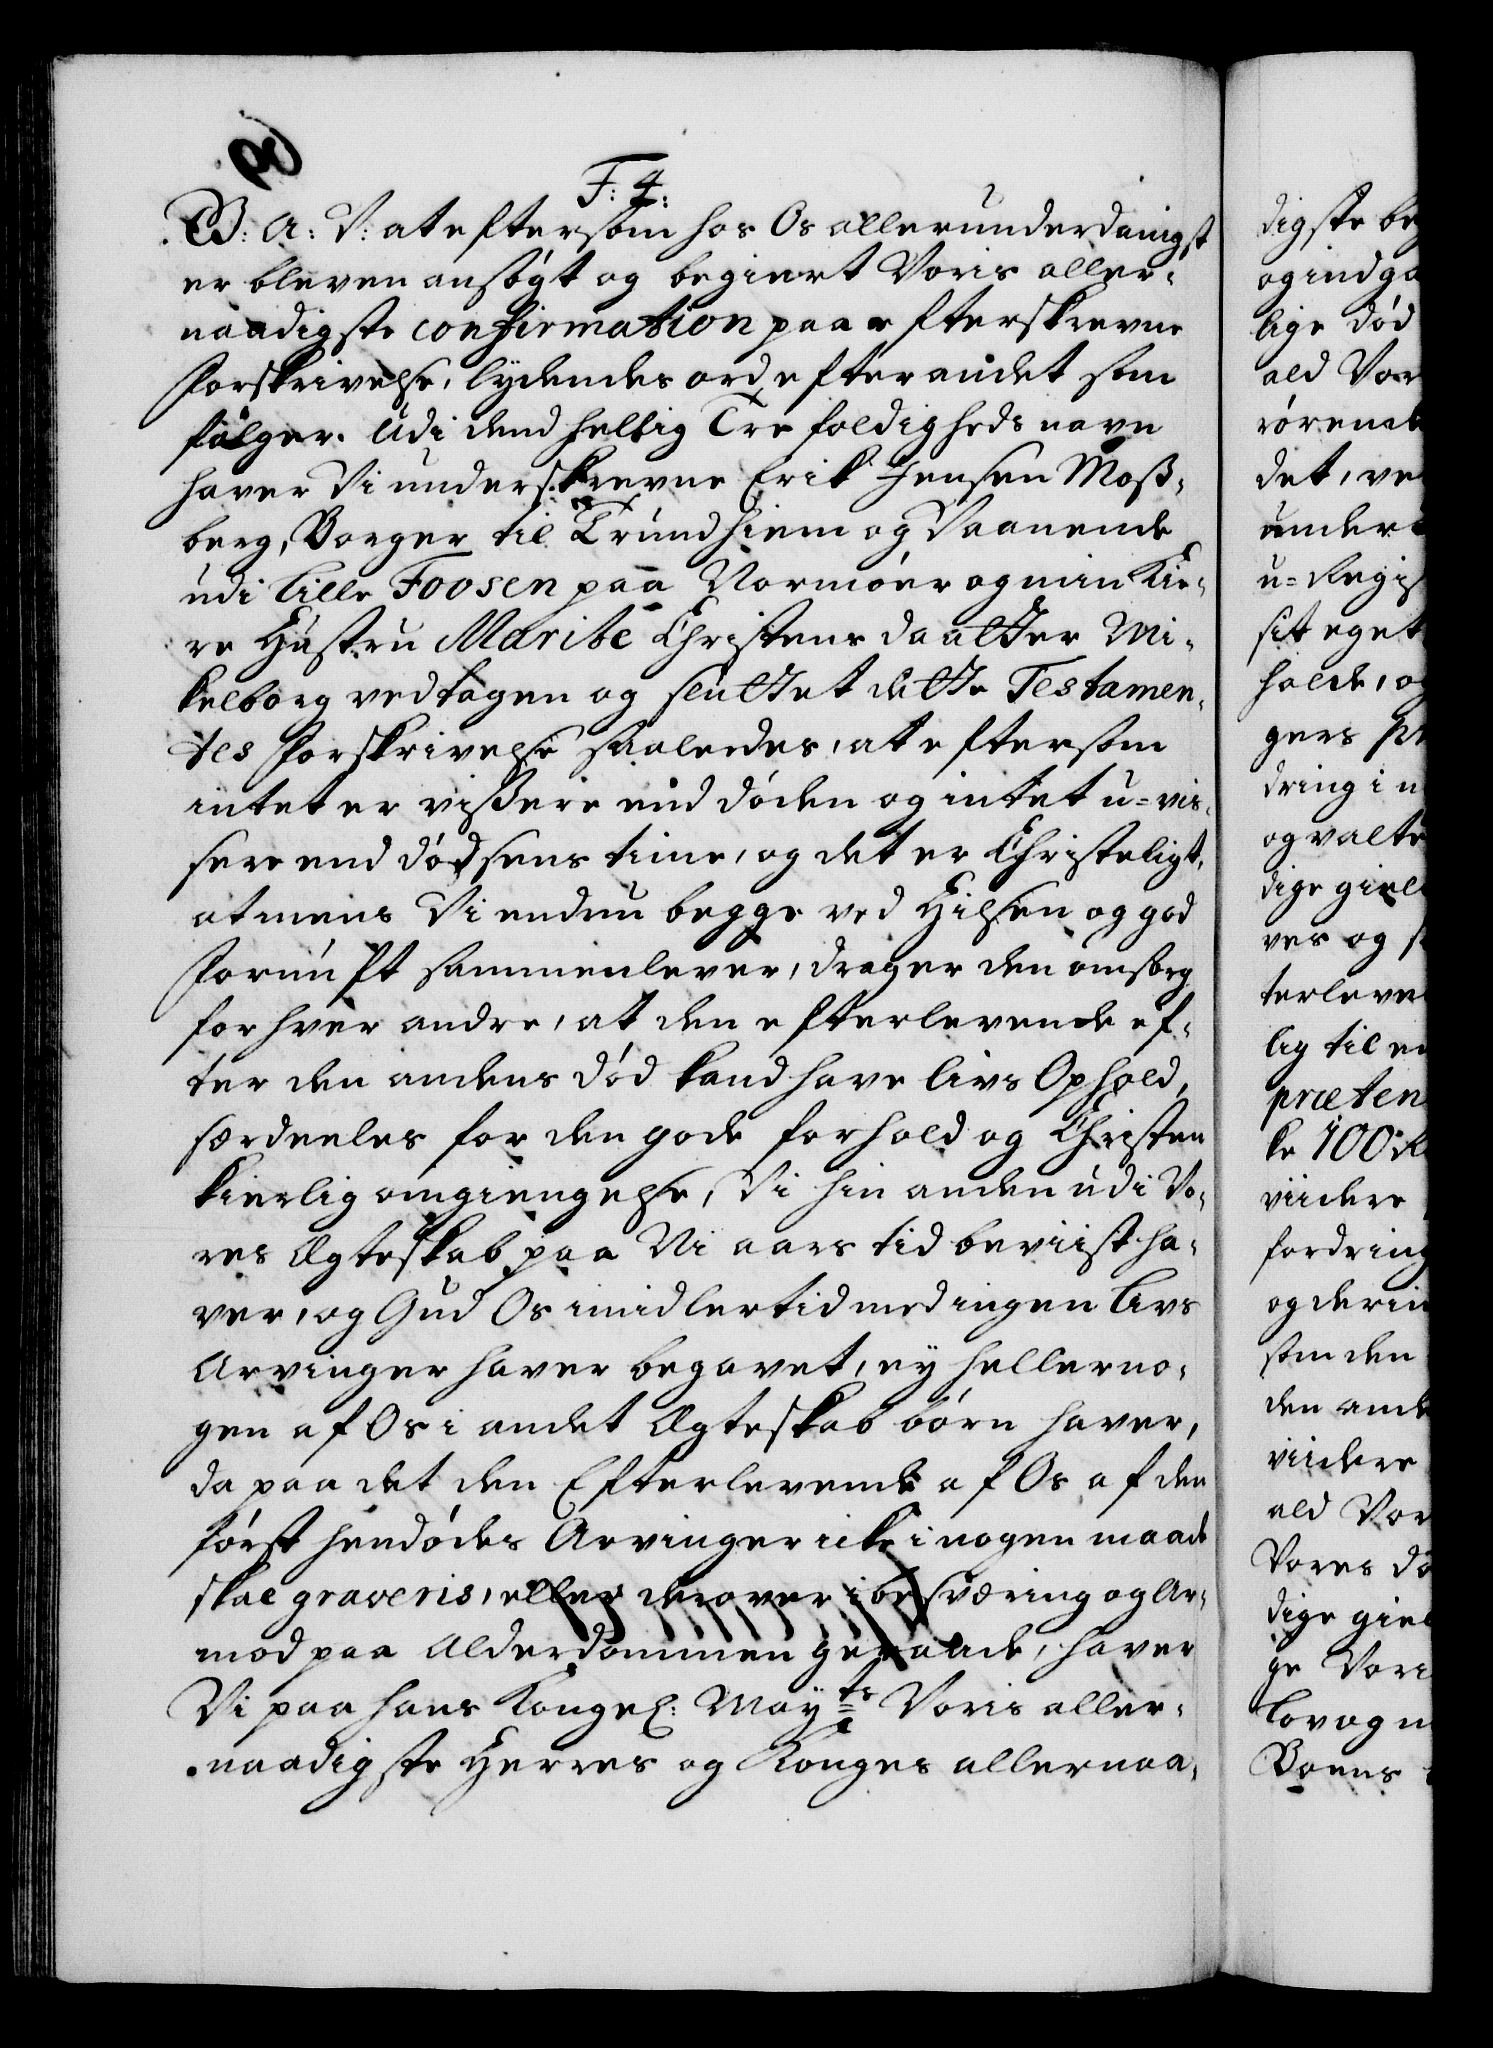 F: 4:
G: A: V: at eftersom hos Os allerunderdanigst
er bleven ansögt og begiert Voris aller-
naadigste confirmation paa efterskrevne
Forskrivelse, lydendes ord efter andet som
fölger. Udi dend hellig Trefoldigheds navn
haver Vi underskrevne Erik Jensen Moß-
berg, Borger til Trundhiem og Vaanende
udi Lille Foosen paa Normöer og min Kie-
re Hustru Marite Christens daatter Mi-
kelborg vedtagen og sluttet dette Testamen-
tes Forskrivelse saaledes, at eftersom
intet er vißere end döden og intet u-vis-
sere end dödsens time, og det er Christeligt,
at mens Vi endnu begge ved Hilsen og god
Fornunft sammenlever, drager den omsorg
for hver andre, at den efterlevende ef-
ter den andens Död kand have livs Ophold,
særdeeles for den gode forhold og Christen
kierlig omgiengelse, Vi hin anden udi Vo-
res Ægteskab paa Ni aars tid beviist ha-
ver, og Gud Os imidlertid med ingen Livs
Arvinger haver begavet, ey heller no-
gen af Os i andet Ægteskab börn haver,
da paa det den Efterlevende af Os af den
först hendödes Arvinger icke i nogen maade
skal graveris, eller derover i besværing og Ar-
mod paa Alderdommen geraade, haver
Vi paa Hans Kongel: Mayts Voris aller-
naadigste Herres og Konges allernaa-
digste be
og indga
lige Död
ald Vor
rörende
det, ve
under
u-Regis
sit eget
holde, og
gers pr
dring i n
og valte
dige giel
ves og s
terleve
lig til en
præten
ke 100 R
viidere
fordring
og derin
som den
den ande
viidere
ald Vor
Vores dö
dige giel
ge Vori
Lov og n
Boens